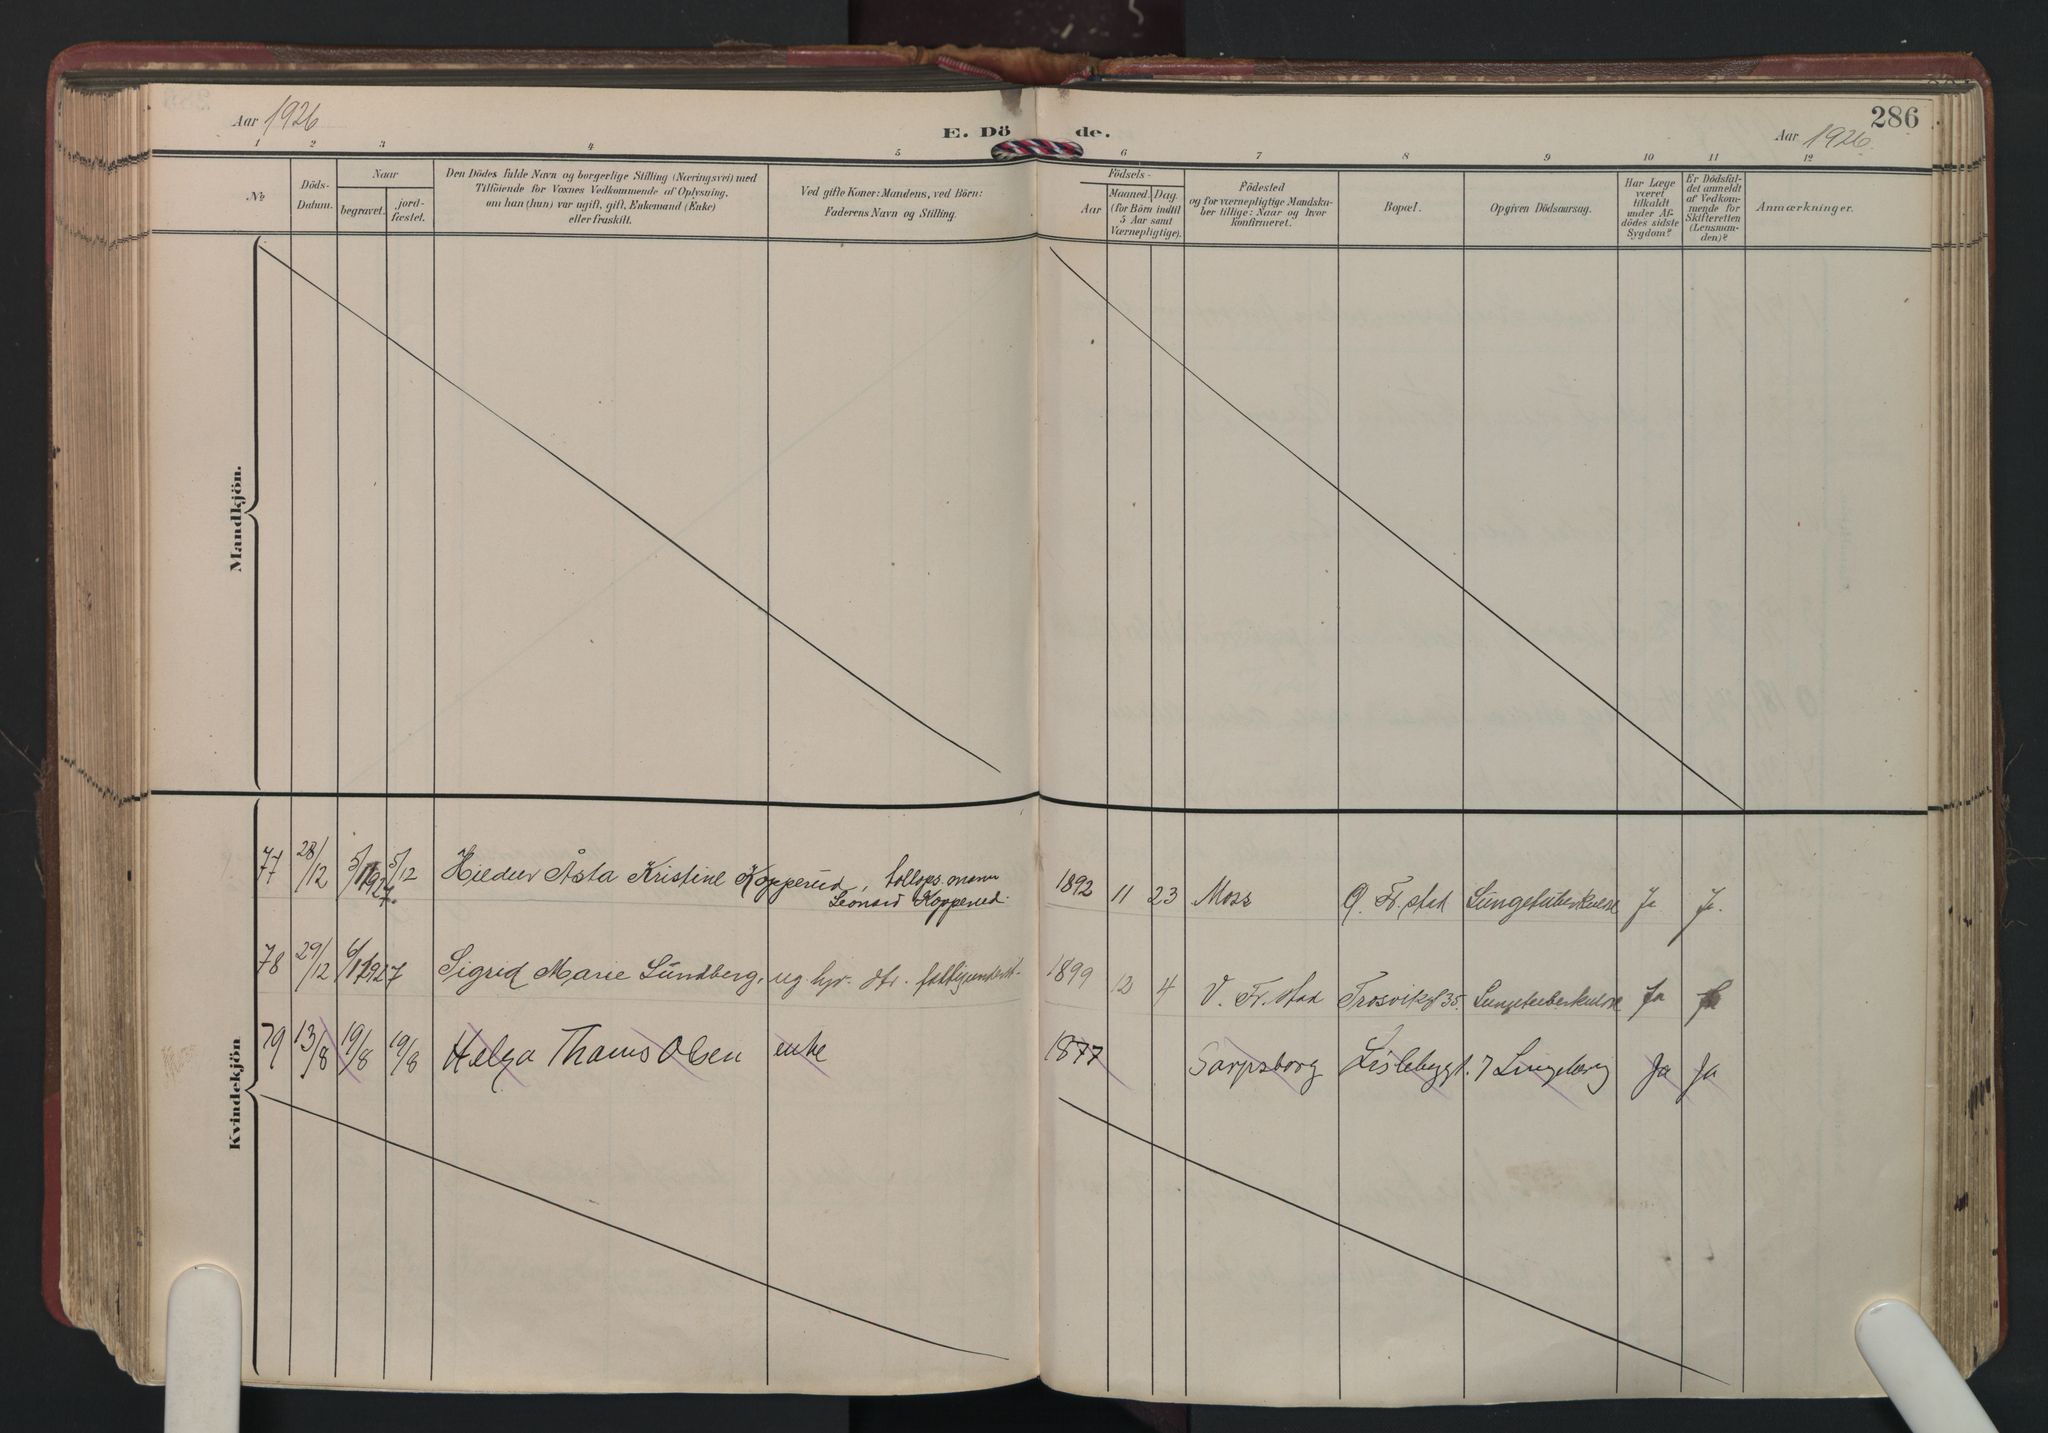 Aar 1926
E. Dö de.
286
Aar 1926.
1 2 3 4 5 6 7 8 9 10 11 12
No
Döds-
Datum.
Naar
begravet.
jord-
fæstet.
Den Dödes fulde Navn og borgerlige Stilling (Næringsvei) med
Tilföiende for Voxnes Vedkommende af Oplysning.
om han (hun) var ugift, gift, Enkemand (Enke)
eller fraskilt.
Ved gifte Koner: Mandens, ved Börn:
Faderens Navn og Stilling.
Födsels-
Aar
Maaned. Dag.
(for Börn indtil
5 Aar samt
Værnepligtige).
Födested
og for værnepligtige Mandska-
ber tillige: Naar og hvor
konfirmeret.
Bopæl.
Opgiven Dödsaarsag.
Har Læge
været
tilkaldt
under Af-
dödes sidste
Sygdom?
Er Dödsfal-
det anmeldt
af Vedkom-
mende for
Skifteretten
(Lensman-
den)?
Anmærkninger.
Mandkjön.
Kvindekjön
77 28/12 5/1 1927. 5/12 Kristine Kopperud, 1892 11 23 Moss Fr.stad Lungetuberkulose Ja Ja.
Leonard Kopperud.
78 29/12 6/1 1927 Sigrid Marie Lundberg, ug. 1899 12 4 V. Fr.stad Trosvikgt 35. Lungetuberkulose Ja Ja
79 13/8 19/8 19/8 Helga Thams Olsen enke 1877 Sarpsborg Lislebygt. 7 Ja Ja